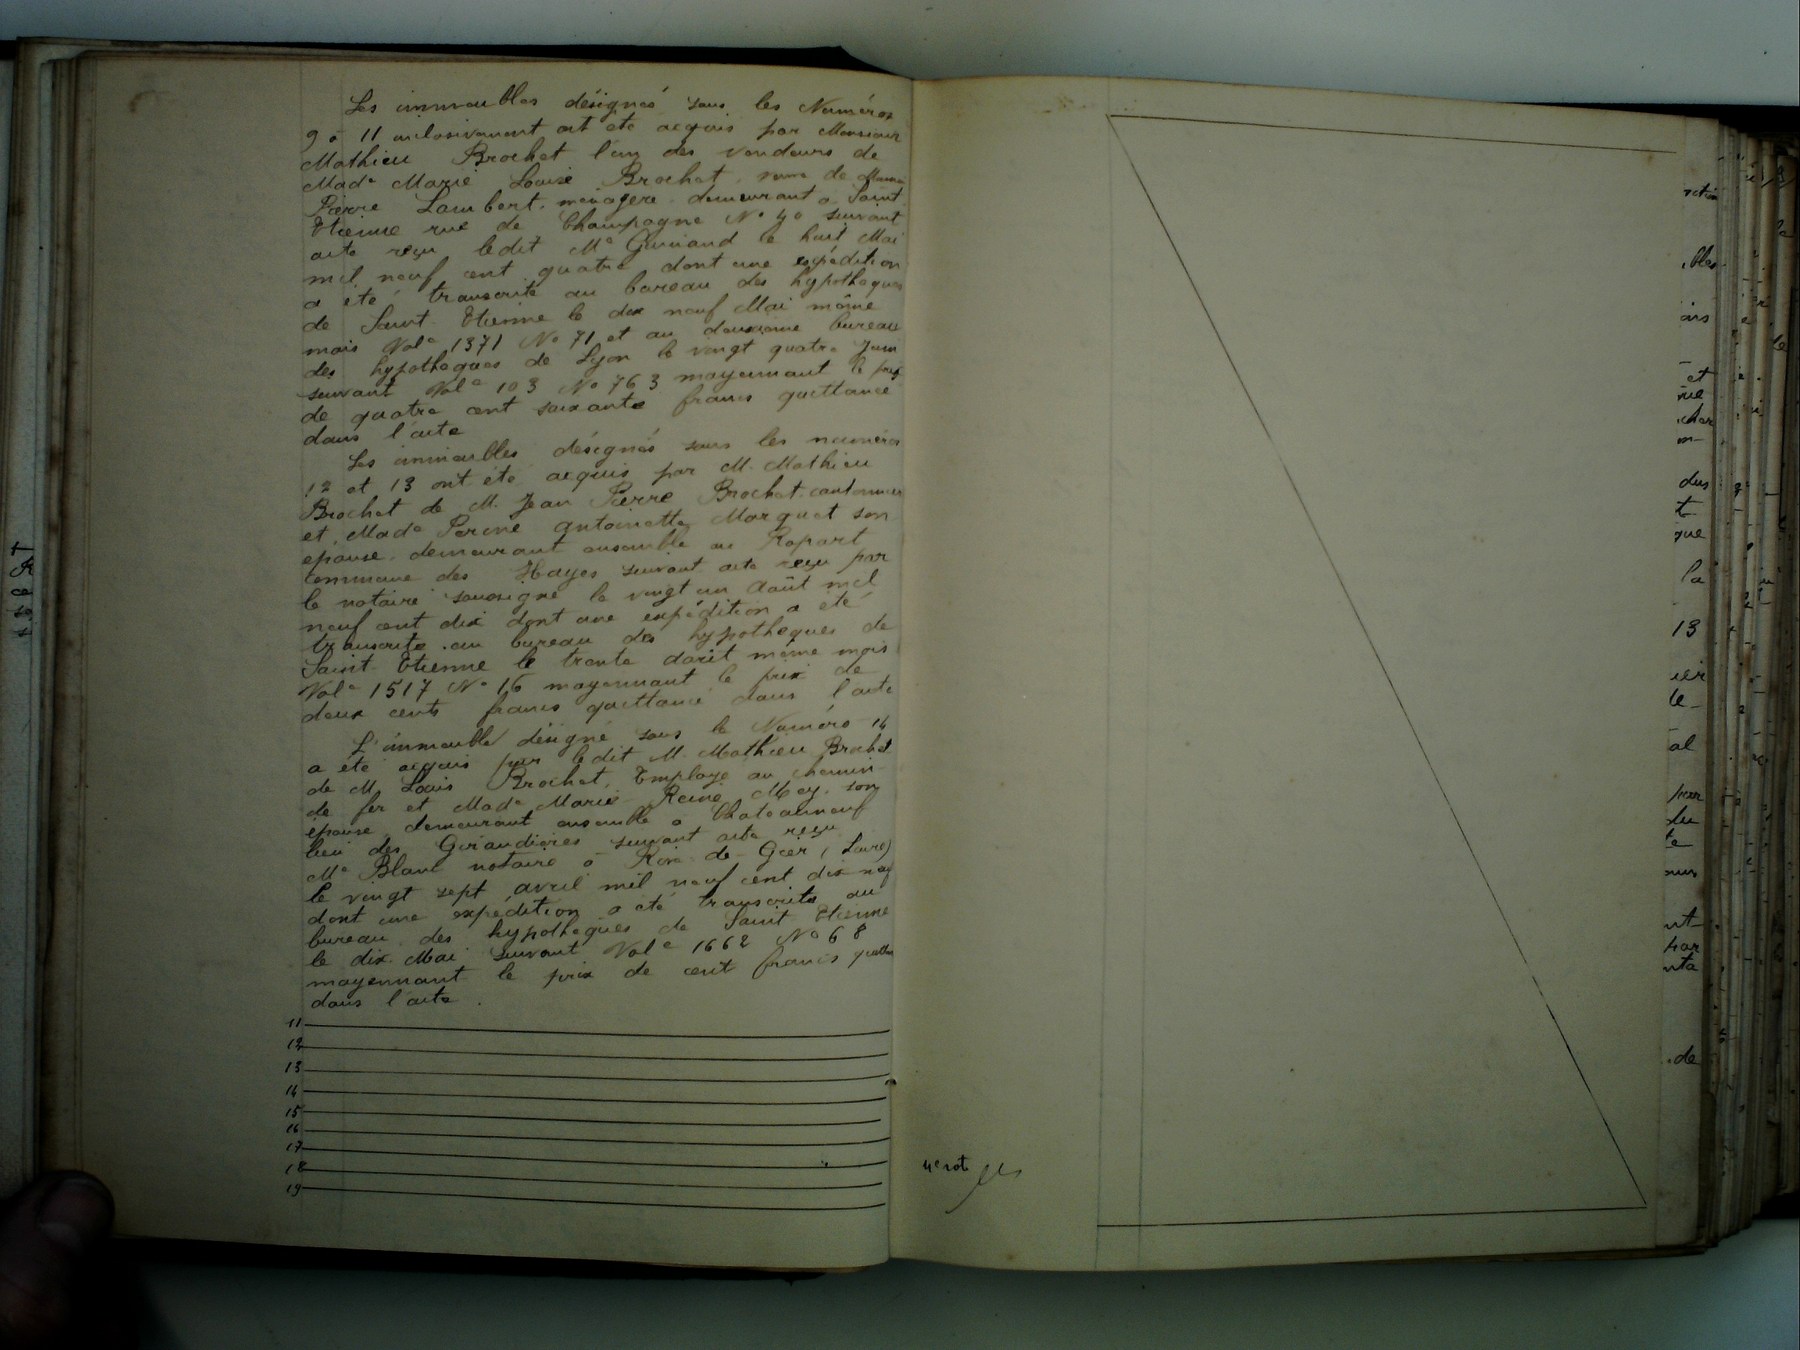 Les immeubles désignés sous les Numéros
9 à 11 inclusivement ont été acquis par Monsieur
Mathieu Brochet l'un des vendeurs de
Made Marie Louise Brochet, de
Pierre Lambert, ménagère demeurant à Saint
Etienne rue de Champagne No 40 suivant
acte reçu ledit Me le huit Mai
mil neuf cent quatre dont une expédition
a été transcrite au bureau des hypothèques
de Saint-Etienne le dix neuf Mai même
mois Vole 1371 No 71 et au deuxième bureau
des hypothèques de Lyon le vingt quatre Juin
suivant Vole 103 No 763 moyennant le prix
de quatre cent soixante francs quittancé
dans l'acte
Les immeubles désignés sous les numéros
12 et 13 ont été acquis par M. Mathieu
Brochet de M. Jean Pierre Brochet cantonnier
et Made Antoinette Marquet son
épouse demeurant ensemble au Ropart
commune des Hayes suivant acte reçu par
le notaire soussigné le vingt un Août mil
neuf cent dix dont une expédition a été
transcrite au bureau des hypothèques de
Saint-Etienne le trente dorit même mois
Vole 1517 No 16 moyennant le prix de
deux cents francs quittancé dans l'acte
L'immeuble désigné sous le Numéro 14
a été acquis par ledit M. Mathieu Brochet
de M. Louis Brochet, Employé au chemin
de fer et Made Marie Reine Mey, son
épouse, demeurant ensemble à Chateauneuf
lieu des Girandières suivant acte reçu
Me Blanc notaire à Rive-de-Gier (Loire)
le vingt sept avril mil neuf cent dix neuf
dont une expédition a été transcrite au
bureau des hypothèques de Saint Etienne
le dix Mai suivant Vole 1662 No 68
moyennant le prix de cent francs
dans l'acte.
11
12
13
14
15
16
17
18
19